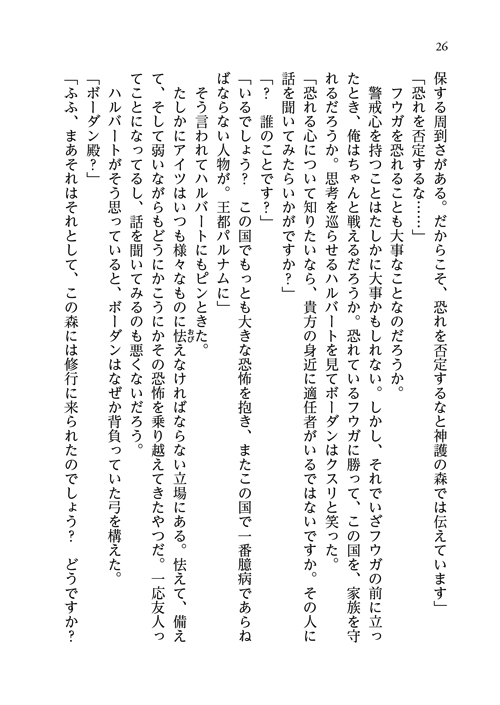 26
保する周到さがある。だからこそ、恐れを否定するなと神護の森では伝えています」
「恐れを否定するな……」
フウガを恐れることも大事なことなのだろうか。
警戒心を持つことはたしかに大事かもしれない。しかし、それでいざフウガの前に立っ
たとき、俺はちゃんと戦えるだろうか。恐れているフウガに勝って、この国を、家族を守
れるだろうか。思考を巡らせるハルバートを見てボーダンはクスリと笑った。
「恐れる心について知りたいなら、貴方の身近に適任者がいるではないですか。その人に
話を聞いてみたらいかがですか？」
「？　誰のことです？」
「いるでしょう？　この国でもっとも大きな恐怖を抱き、またこの国で一番臆病であらね
ばならない人物が。王都パルナムに」
そう言われてハルバートにもピンときた。
たしかにアイツはいつも様々なものに怯えなければならない立場にある。怯えて、備え
おび
て、そして弱いながらもどうにかこうにかその恐怖を乗り越えてきたやつだ。一応友人っ
てことになってるし、話を聞いてみるのも悪くないだろう。
ハルバートがそう思っていると、ボーダンはなぜか背負っていた弓を構えた。
「ボーダン殿？」
「ふふ、まあそれはそれとして、この森には修行に来られたのでしょう？　どうですか？